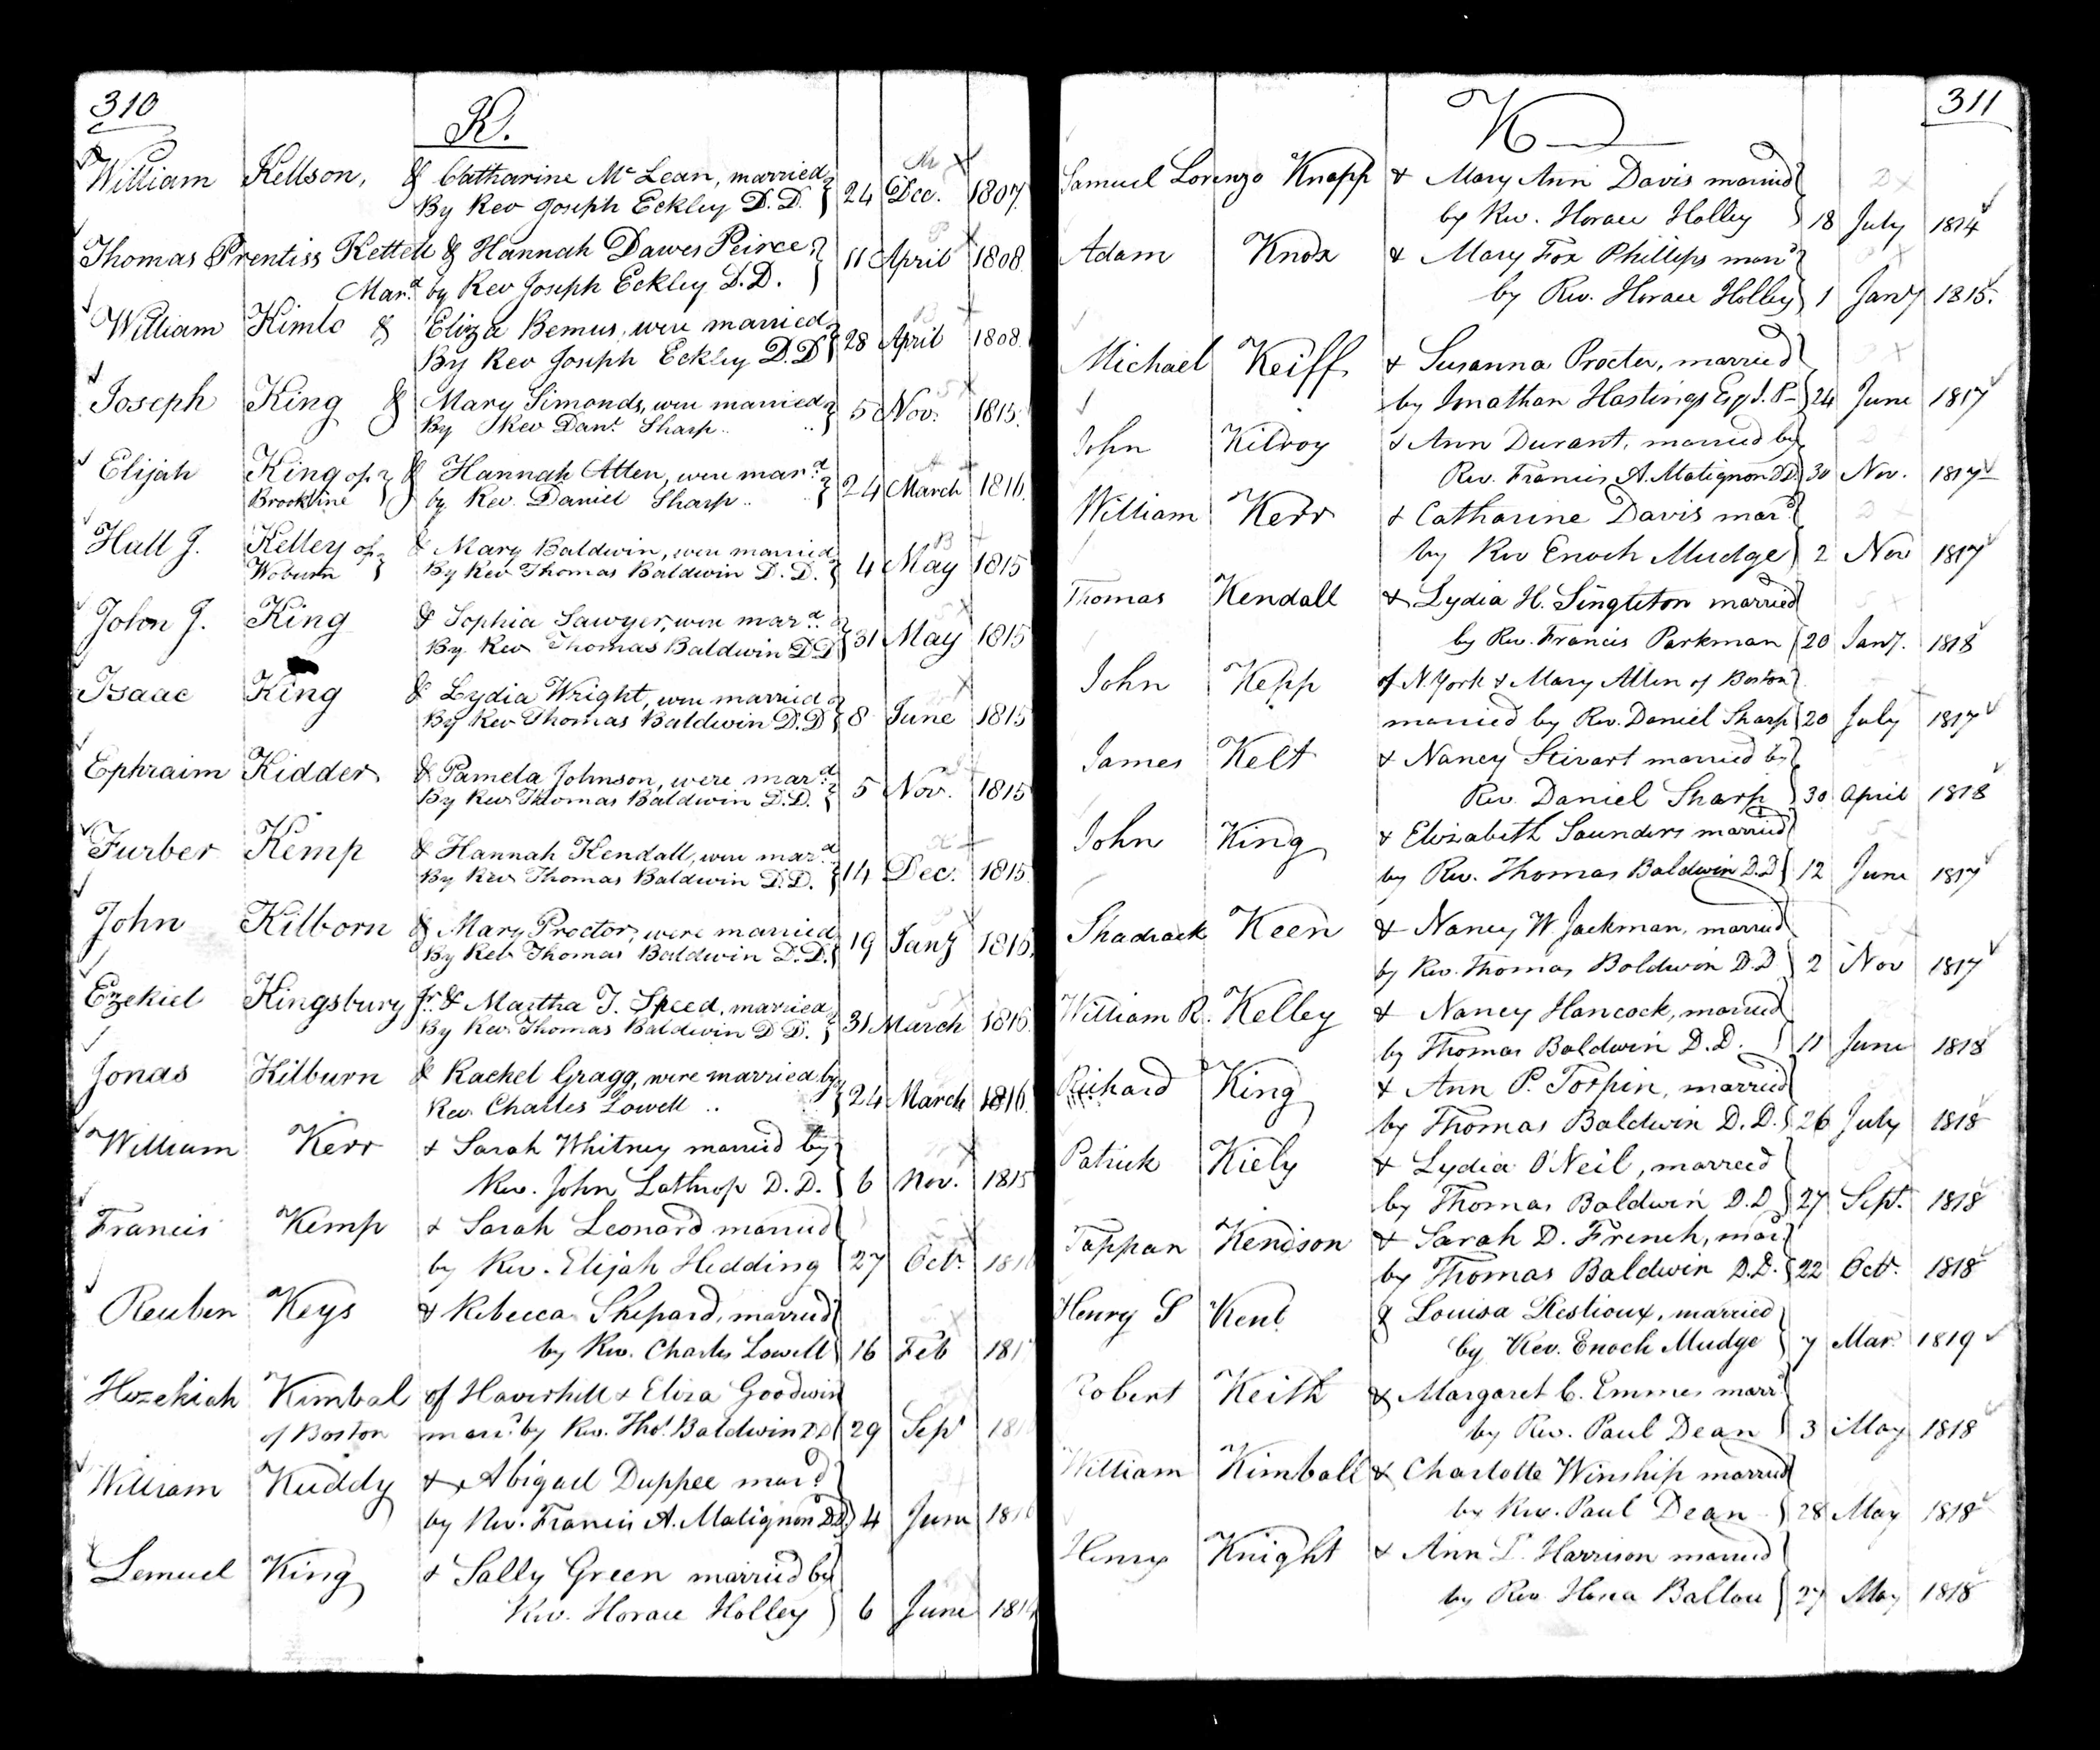 310
K.
William Kellson, & Catharine Mc Lean, married
By Rev Joseph Eckley D.D. 24 Dec. 1807.
Thomas Prentiss Kettell & Hannah Dawes Peirce
Mard. by Rev Joseph Eckley D.D. 11 April 1808
William Kimlo & Eliza Bemus, were married
By Rev Joseph Eckley D.D 28 April 1808.
Joseph King & Mary Simonds, were married
By Rev Danl. Sharp.. 5 Nov. 1815.
Elijah King of & Hannah Allen, were mard.
Brookline by Rev. Daniel Sharp.. 24 March 1816.
Hall J. Kelley of & Mary Baldwin, were married
Woburn By Rev Thomas Baldwin D.D. 4 May 1815
John J. King & Sophia Sawyer, were mard.
By Rev Thomas Baldwin D.D 31 May 1815
Isaac King & Lydia Wright, were married
By Rev Thomas Baldwin D.D 8 June 1815
Ephraim Kidder & Pamela Johnson, were mard.
By Rev Thomas Baldwin D.D. 5 Nov. 1815
Furber Kemp & Hannah Kendall, were mard.
By Rev Thomas Baldwin D.D. 14 Dec. 1815
John Kilborn & Mary Proctor, were married
By Rev Thomas Baldwin D.D. 19 Jany 1816.
Ezekiel Kingsbury Jr. & Martha T. Speed, married
By Rev. Thomas Baldwin D D. 31 March 1816.
Jonas Kilburn & Rachel Gragg, were married by
Rev. Charles Lowell .. 24 March 1816.
William Kerr & Sarah Whitney married by
Rev. John Lathrop D.D. 6 Nov. 1815
Francis Kemp & Sarah Leonard married
by Rev. Elijah Hedding 27 Oct.
Reuben Keys & Rebecca Shepard, married
by Rev. Charles Lowell 16 Feb
Hezekiah Kimbal of Haverhill & Eliza Goodwin
of Boston mard. by Rev. Thos. Baldwin DD 29 Sep
William Kuddy & Abigail Duppee mard.
by Rev. Francis A. Matignon DD 4 June
Lemuel King & Sally Green married by
Rev. Horace Holley 6 June
311
K
Samuel Lorenzo Knapp & Mary Ann Davis married
by Rev. Horace Holley 18 July 1814
Adam Knox & Mary Fox Phillips mard.
by Rev. Horace Holley 1 Jany 1815.
Michael Keiff & Susanna Procter, married
by Jonathan Hastings Esq J. P 24 June 1817
John Kilroy & Ann Durant, married by
Rev. Francis A. Matignon DD. 30 Nov. 1817
William Kerr & Catharine Davis mard.
by Rev Enoch Mudge 2 Nov 1817
Thomas Kendall & Lydia H. Singleton married
by Rev. Francis Parkman 20 Jany. 1818
John Kepp of N. York & Mary Allen of Boston
married by Rev. Daniel Sharp 20 July 1817
James Kelt & Nancy Stivart married by
Rev. Daniel Sharp 30 April 1818
John King & Elizabeth Saunders married
by Rev. Thomas Baldwin D.D 12 June 1817
Shadrack Keen & Nancy W. Jackman, married
by Rev. Thomas Baldwin D.D 2 Nov 1817
William R. Kelley & Nancy Hancock, married
by Thomas Baldwin D.D. 11 June 1818
Richard King & Ann P. Torpin, married
by Thomas Baldwin D.D. 26 July 1818
Patrick Kiely & Lydia O'Neil, married
by Thomas Baldwin D.D 27 Sept. 1818
Tappan Kendson & Sarah D. French, mar
by Thomas Baldwin D.D. 22 Oct. 1818
Henry S Kent & Louisa Restioux, married
by Rev. Enoch Mudge 7 Mar. 1819
Robert Keith & Margaret C. Emmes marrd.
by Rev. Paul Dean 3 May 1818
William Kimball & Charlotte Winship married
by Rev. Paul Dean 28 May 1818
Henry Knight & Ann Harrison married
by Rev Hosea Ballou 27 May 1818